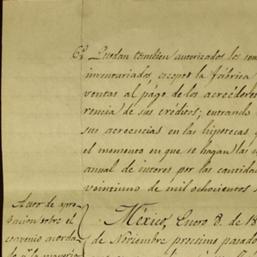 6ª Quedan tambien autorizados los
inventariados, escepto la fabrica
ventas al págo de los acreédores
de sus créditos; entrando
sus acreencias en las hipotecas
el momento en que se hagan las
annal de interes por las cantidad
veintiuno de mil ochocientos
Mexico, Enero 8. de 18
de Noviembre proximo pasado
Actor de apro-
bacion sobre el
convenio acorda-
do á la mayoria